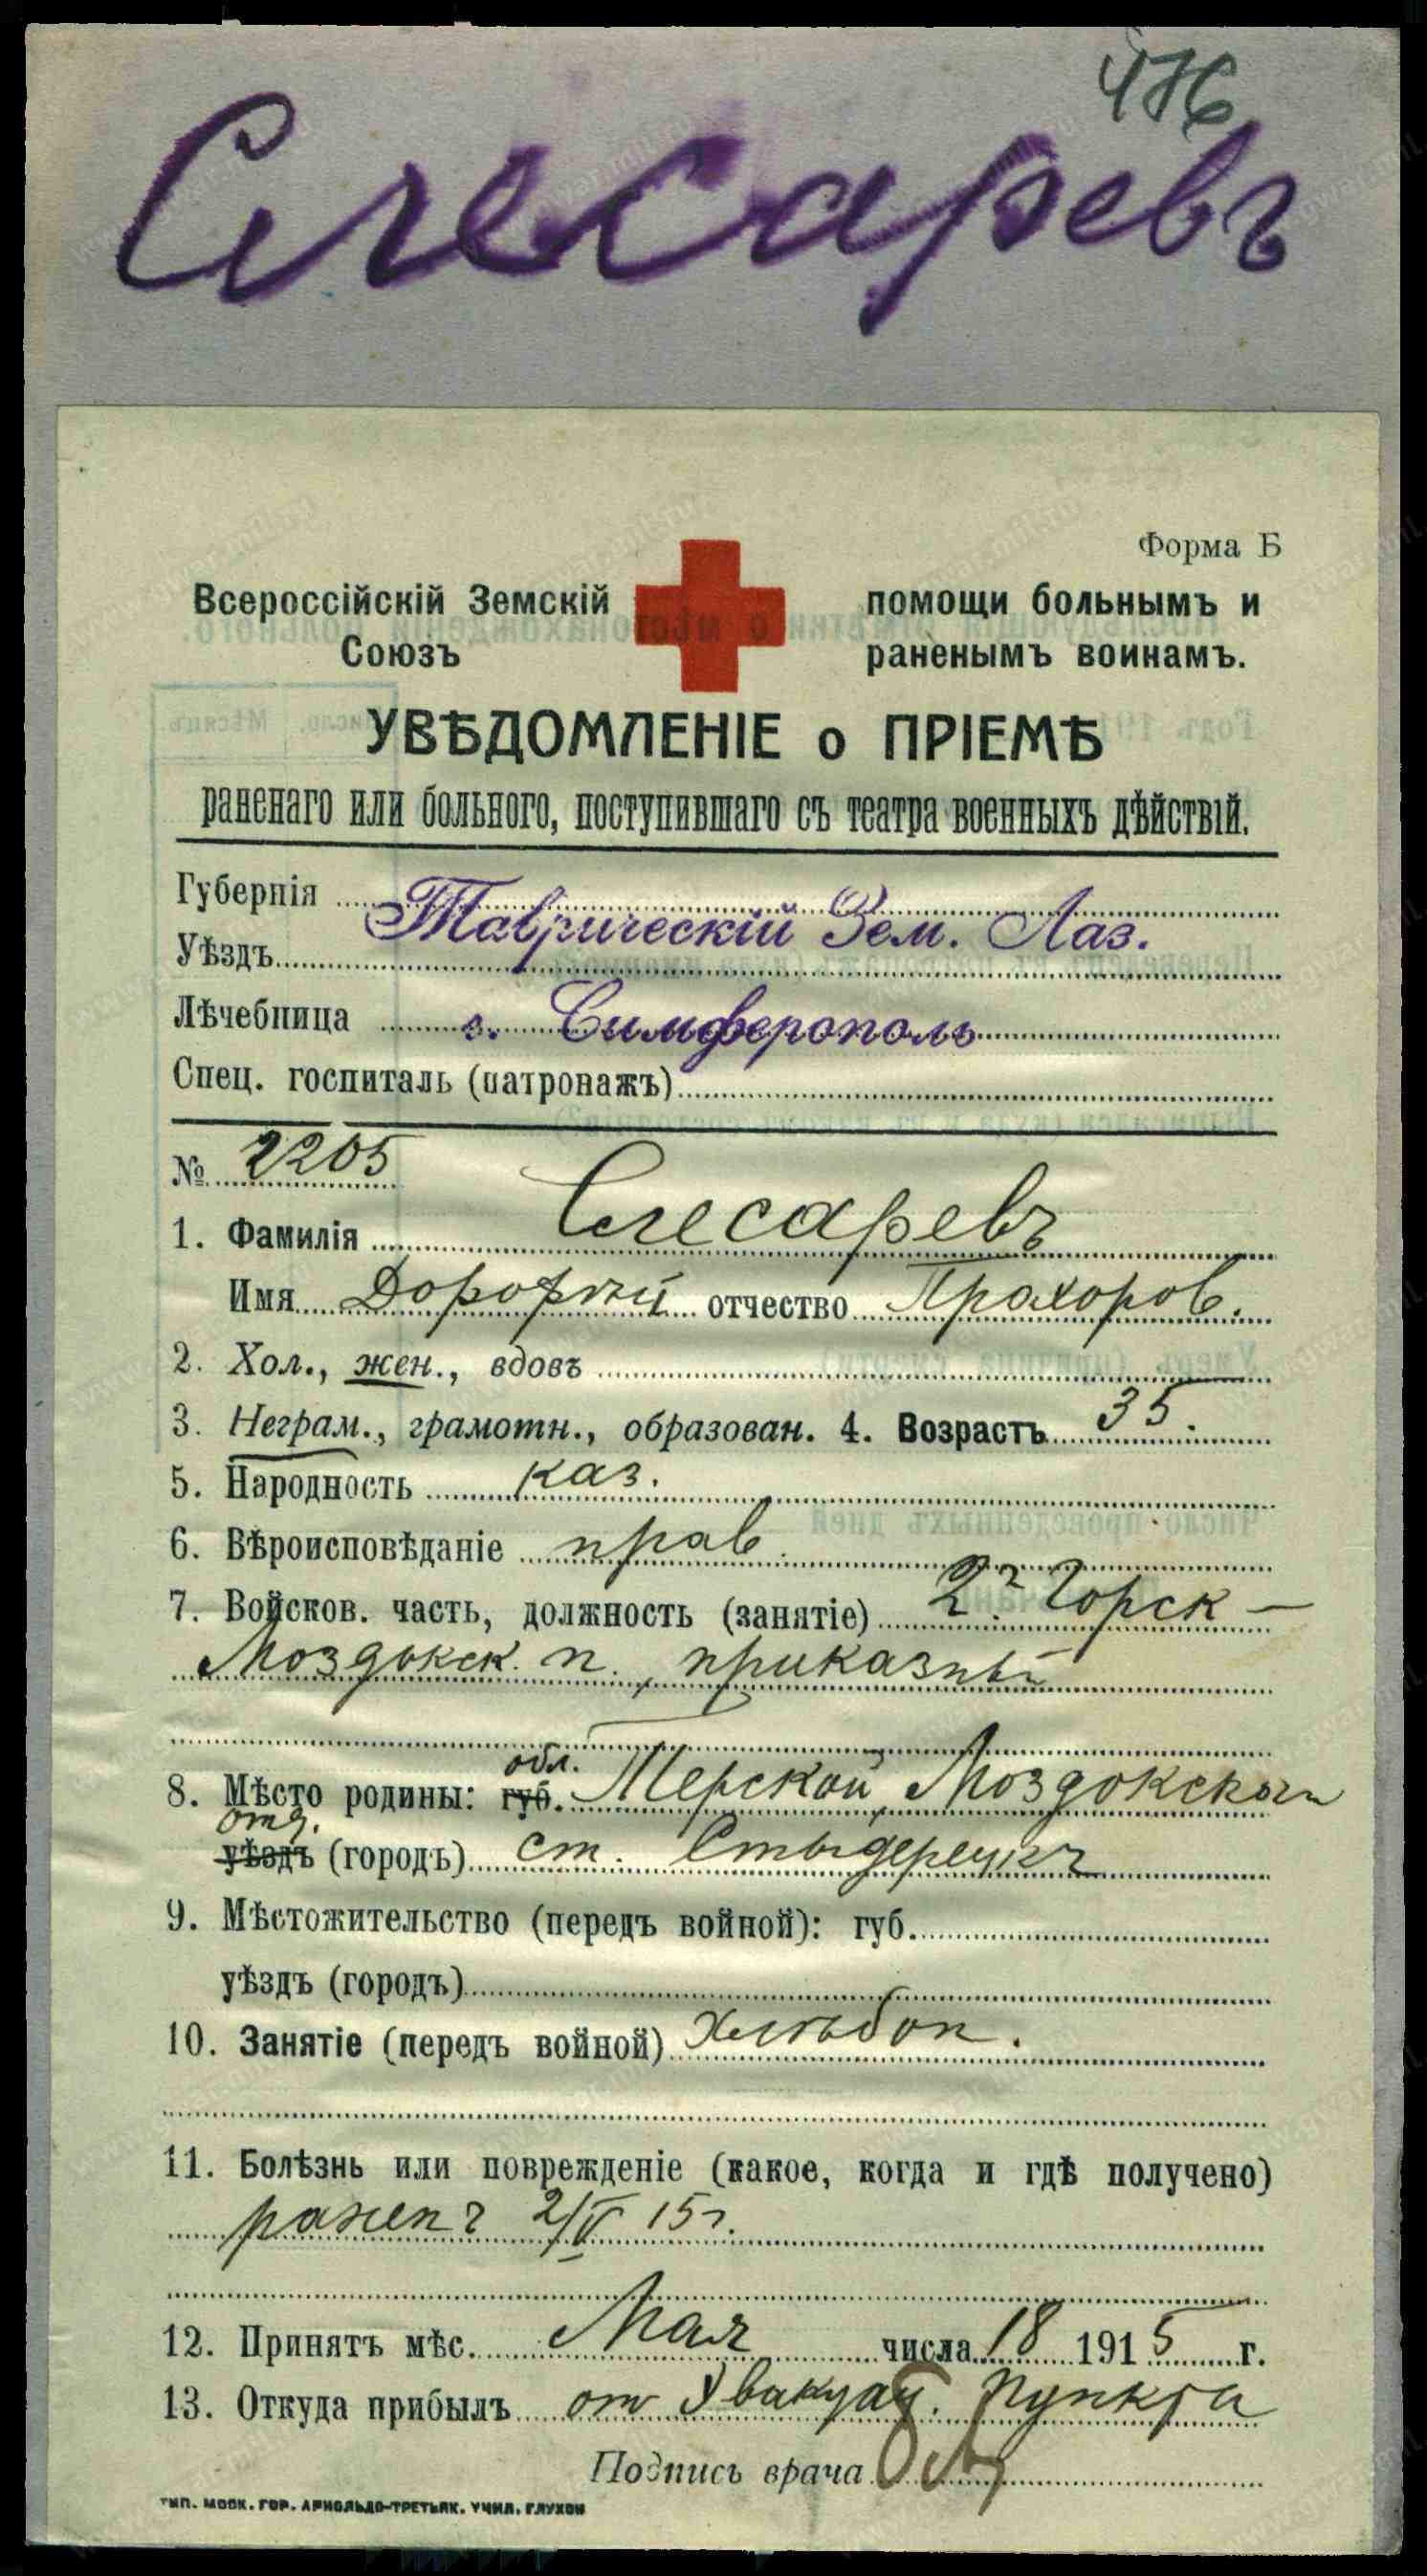 476
Слесаревъ
Форма Б
Всероссійскій Земскій помощи больнымъ и
Союзъ раненымъ воинамъ.
УВѢДОМЛЕНІЕ о ПРІЕМѢ
раненаго или больного, поступившаго съ театра военныхъ дѣйствій.
Губернія Таврическій Зем. Лаз.
Уѣздъ
Лѣчебница г. Симферополь
Спец. госпиталь (патронажъ)
№ 2205
1. Фамилія Слесаревъ
Имя Дорофей отчество Прохоров.
2. Хол., жен., вдовъ
3. Неграм., грамотн., образован. 4. Возрастъ 35.
5. Народность каз.
6. Вѣроисповѣданіе прав.
7. Войсков. часть, должность (занятіе) 2й Горск-
Моздокск. п., приказный
обл.
8. Мѣсто родины: губ. Терской, Моздокскаго
отд.
уѣздъ (городъ) ст.
9. Мѣстожительство (передъ войной): губ.
уѣздъ (городъ)
10. Занятіе (передъ войной) Хлѣбоп.
11. Болѣзнь или поврежденіе (какое, когда и гдѣ получено)
раненъ 2/V 15г.
12. Принятъ мѣс. Мая числа 18 1915 г.
13. Откуда прибылъ от Эвакуац. Пункта
Подпись врача
ТИП. МОСК. ГОР. АРНОЛЬДО-ТРЕТЬЯК. УЧИЛ. ГЛУХОН